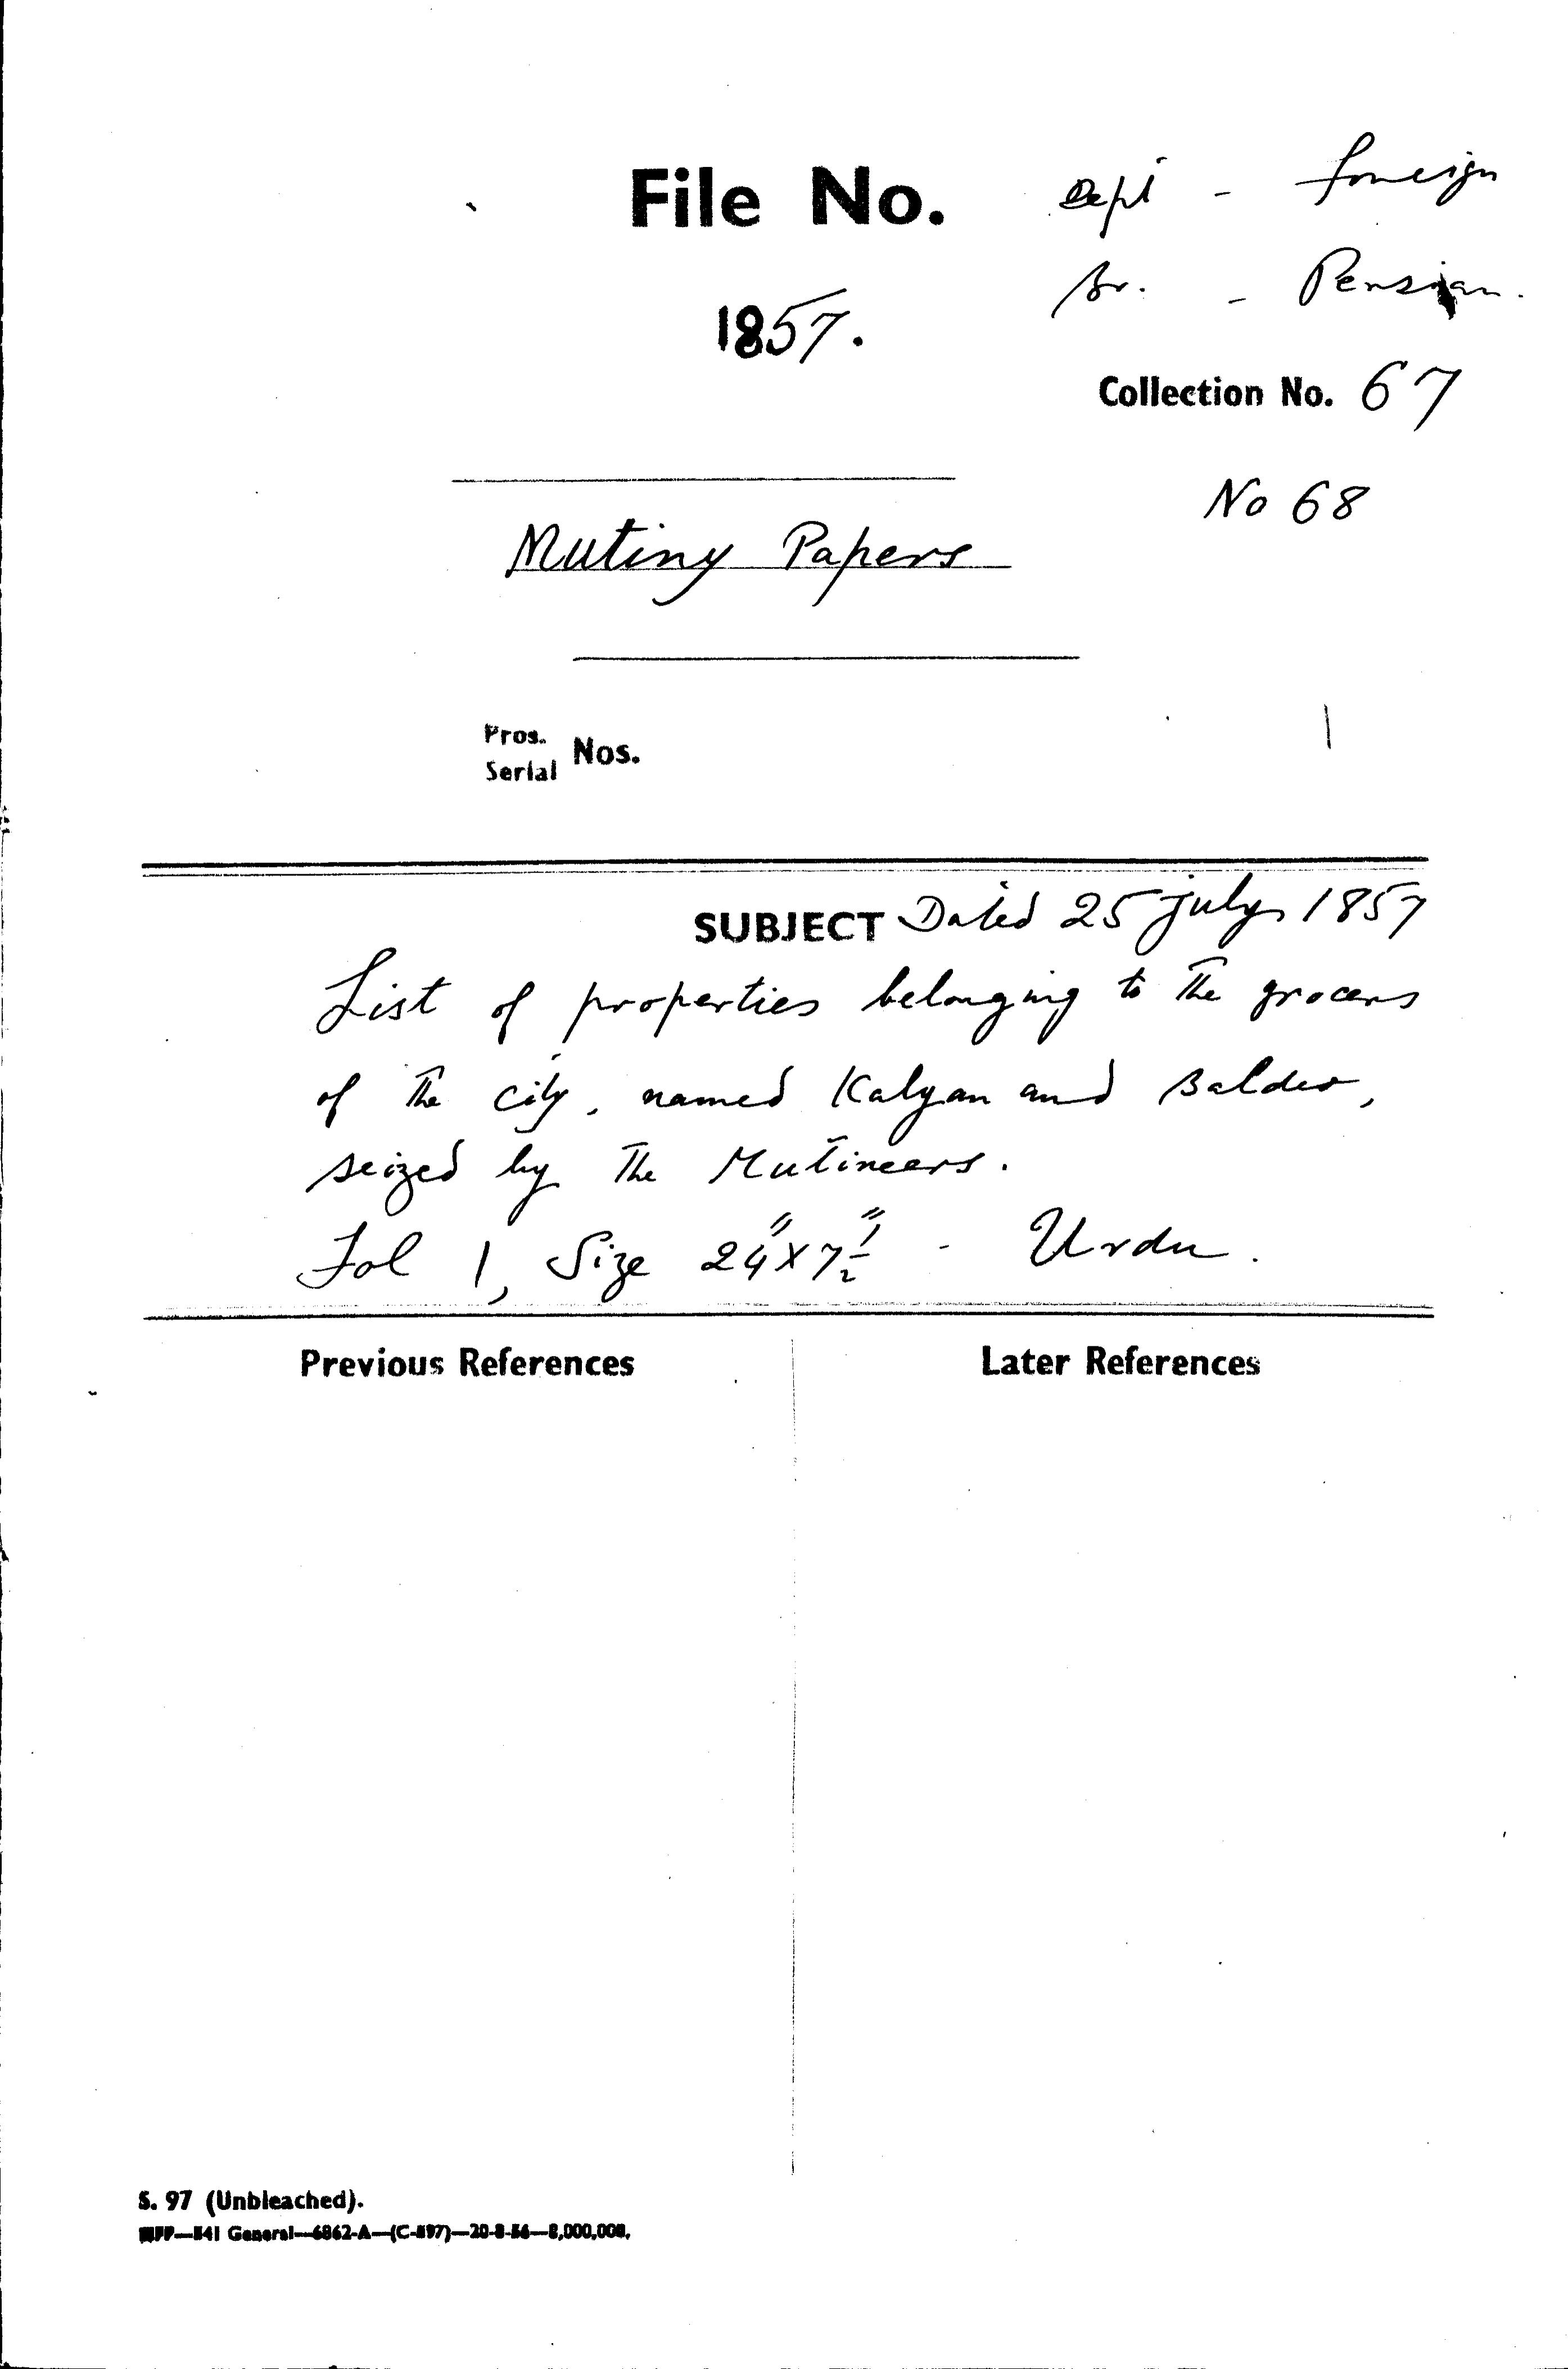 File No. Dept - Foreign
Br. - Persian.
1857.
Collection No. 67
No 68
Mutiny Papers
Pros.
Serial Nos.
1
SUBJECT Dated 25 July 1857
List of properties belonging to the grocers
of the city, named Kalyan and Baldeo,
seized by the Mutineers.
Fol 1, Size 24"X7 1/2" - Urdu.
Previous References Later References
S. 97 (Unbleached).
General—6862-A—